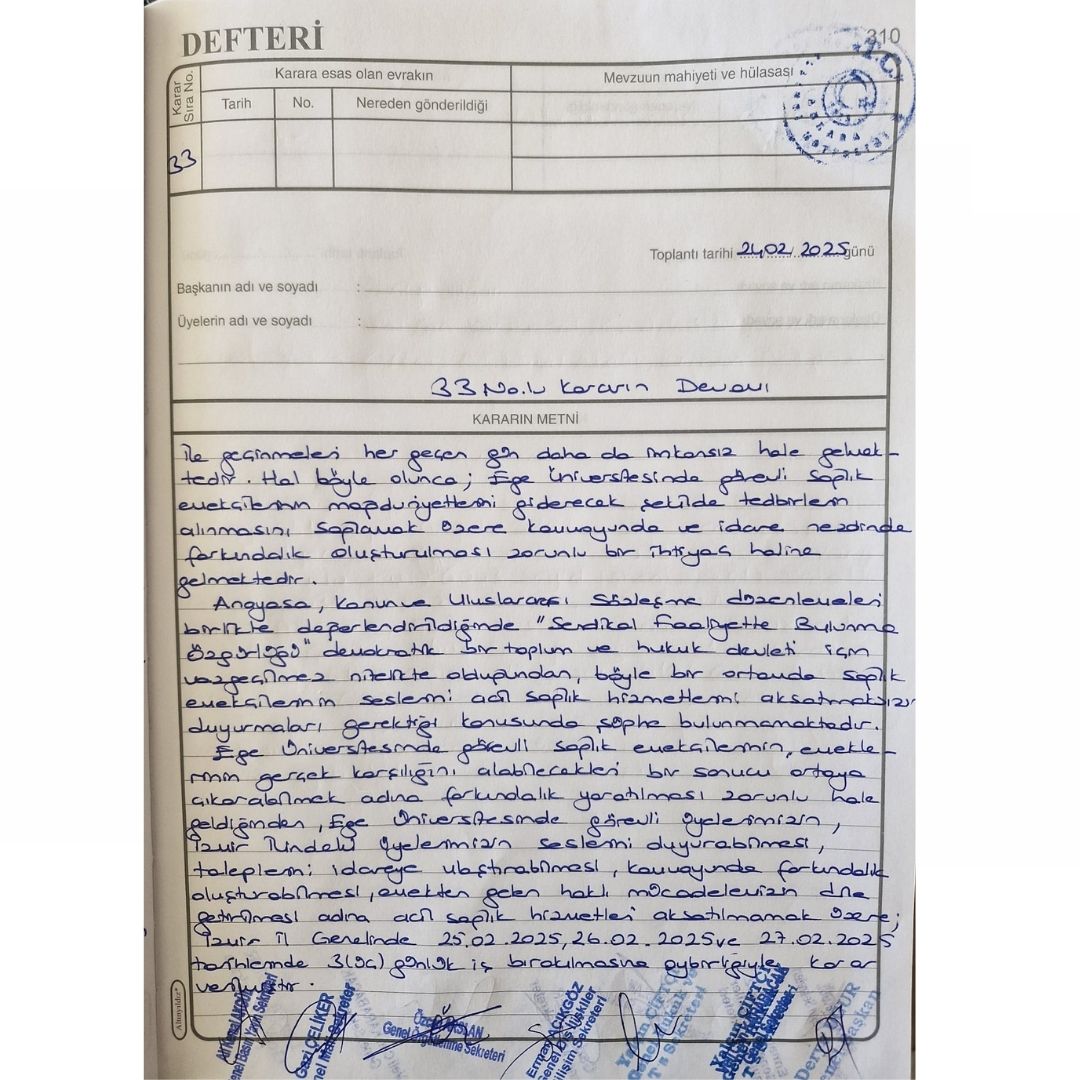 DEFTERİ
310
Karar Sıra No.
Karara esas olan evrakın
Mevzuun mahiyeti ve hülasası
Tarih
No.
Nereden gönderildiği
T.C.
33
Toplantı tarihi 24.02/2025 günü
Başkanın adı ve soyadı :
Üyelerin adı ve soyadı :
33 No.lu Kararın Devamı
KARARIN METNİ
ile geçinmeleri her geçen gün daha da imkansız hale gelmek-
tedir. Hal böyle olunca; Ege Üniversitesinde görevli sağlık
emekçilerinin mağduriyetlerini giderecek şekilde tedbirlerin
alınmasını sağlamak üzere kamuoyunda ve idare nezdinde
farkındalık oluşturulması zorunlu bir ihtiyaç haline
gelmektedir.
Anayasa, Kanun ve Uluslararası Sözleşme düzenlemeleri
birlikte değerlendirildiğinde "Sendikal Faaliyette Bulunma
Özgürlüğü" demokratik bir toplum ve hukuk devleti için
vazgeçilmez nitelikte olduğundan, böyle bir ortamda sağlık
emekçilerinin seslerini acil sağlık hizmetlerini aksatmaksızın
duyurmaları gerektiği konusunda şüphe bulunmamaktadır.
Ege Üniversitesinde görevli sağlık emekçilerinin, emekle-
rinin gerçek karşılığını alabilecekleri bir sonucu ortaya
çıkarabilmek adına farkındalık yaratılması zorunlu hale
geldiğinden, Ege Üniversitesinde görevli üyelerimizin,
İzmir İlindeki üyelerimizin seslerini duyurabilmesi,
taleplerini idareye ulaştırabilmesi, kamuoyunda farkındalık
oluşturabilmesi, emekten gelen haklı mücadelemizin dile
getirilmesi adına acil sağlık hizmetleri aksatılmamak üzere;
İzmir İl Genelinde 25.02.2025, 26.02.2025 ve 27.02.2025
tarihlerinde 3(üç) günlük iş bırakılmasına oybirliğiyle karar
verilmiştir.
Altınyıldız
Genel Basın Yayın Sekreteri
Gazi ÇELİKER
Genel Mali Sekreter
Genel Örgütlenme Sekreteri
Erman AÇIKGÖZ
Genel Dış İlişkiler